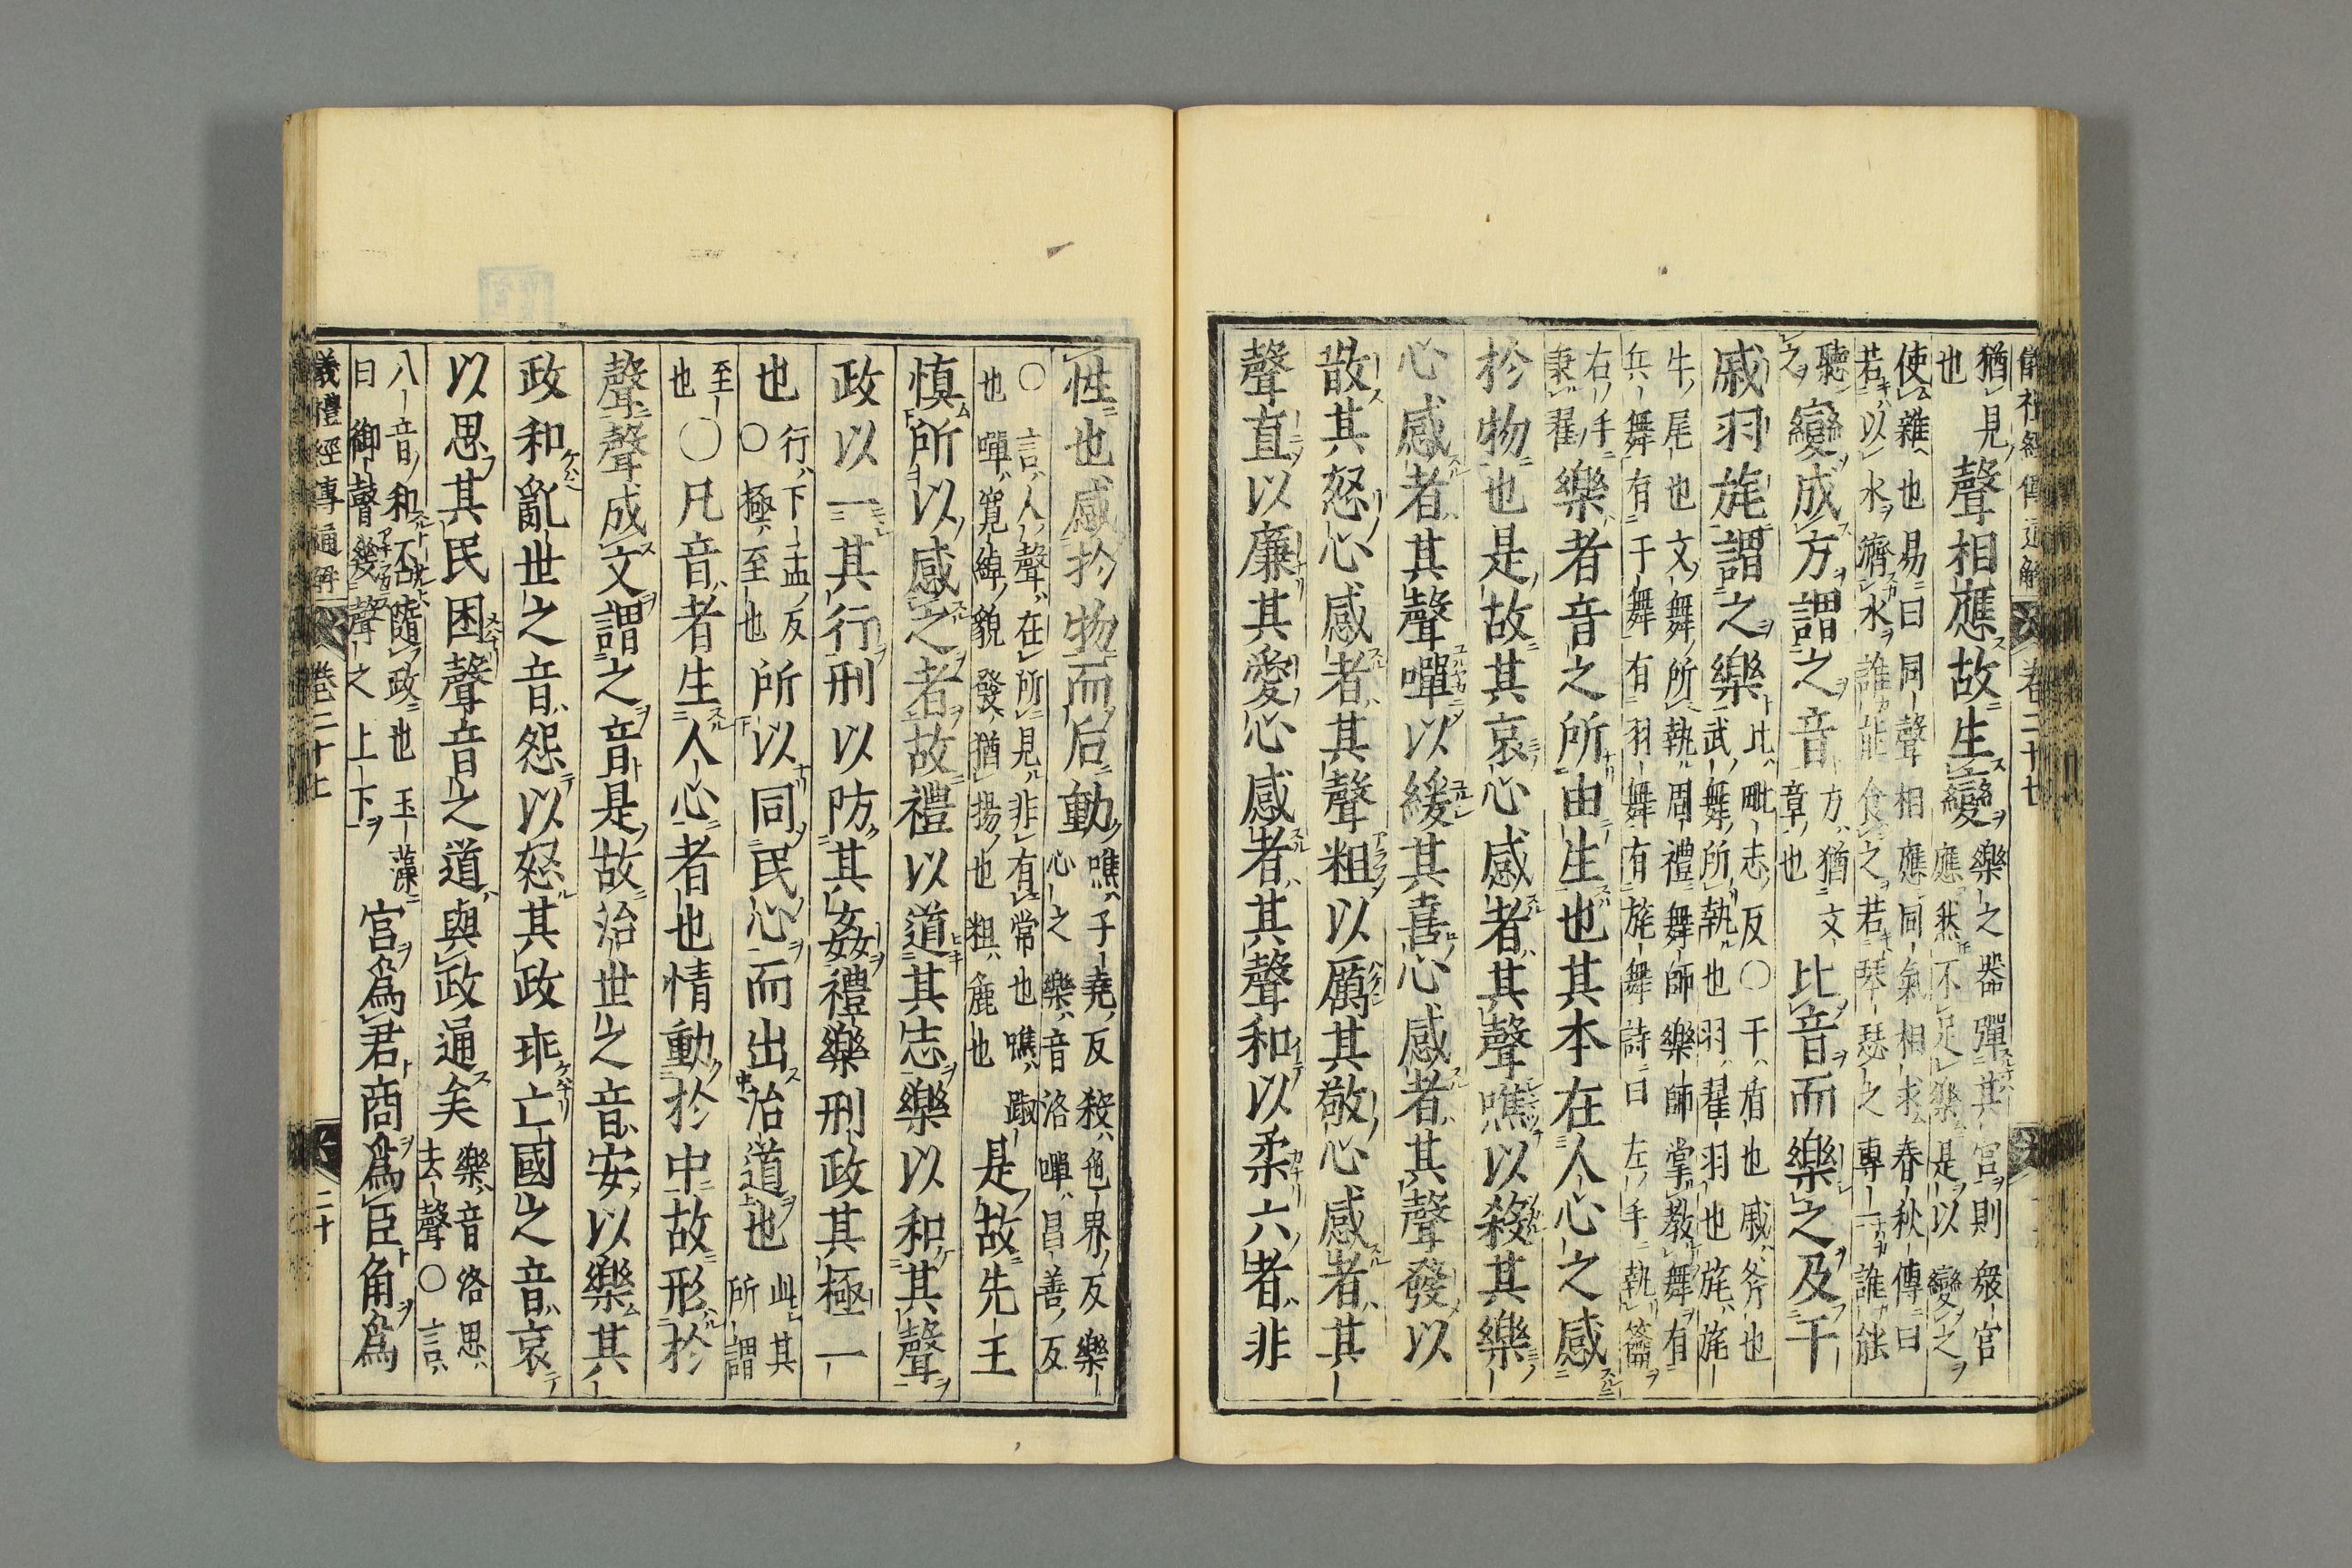 猶見也聲相應故生變樂之器彈其宮則衆宮應然不足樂是以變之
使雜也易曰同聲相應同氣相求春秋傳曰若以水濟水誰能食之若琴瑟之專一誰能
聽之變成方謂之音方猶文章也比音而樂之及干
戚羽旄謂之樂比毗志反〇干盾也戚斧也武舞所執也羽翟羽也旄旄
牛尾也文舞所執周禮舞師樂師掌教舞有兵舞有干舞有羽舞有旄舞詩曰左手執籥
右手秉翟樂者音之所由生也其本在人心之感
於物也是故其哀心感者其聲噍以殺其樂
心感者其聲嘽以緩其喜心感者其聲發以
散其怒心感者其聲粗以厲其敬心感者其
聲直以廉其愛心感者其聲和以柔六者非
性也感於物而后動噍子堯反殺色界反樂心之樂音洛嘽昌善反
〇言人聲在所見非有常也噍踧也嘽寬綽貌發猶揚也粗麁也是故先王
慎所以感之者故禮以道其志樂以和其聲
政以一其行刑以防其姦禮樂刑政其極一
也行下孟反〇極至也所以同民心而出治道也此其所謂
至也〇凡音者生人心者也情動於中故形於
聲聲成文謂之音是故治世之音安以樂其
政和亂世之音怨以怒其政乖亡國之音哀
以思其民困聲音之道與政通矣樂音洛思去聲〇言
八音和否隨政也玉藻曰御瞽幾聲之上下宮爲君商爲臣角爲
儀禮經傳通解
卷二十七
二十